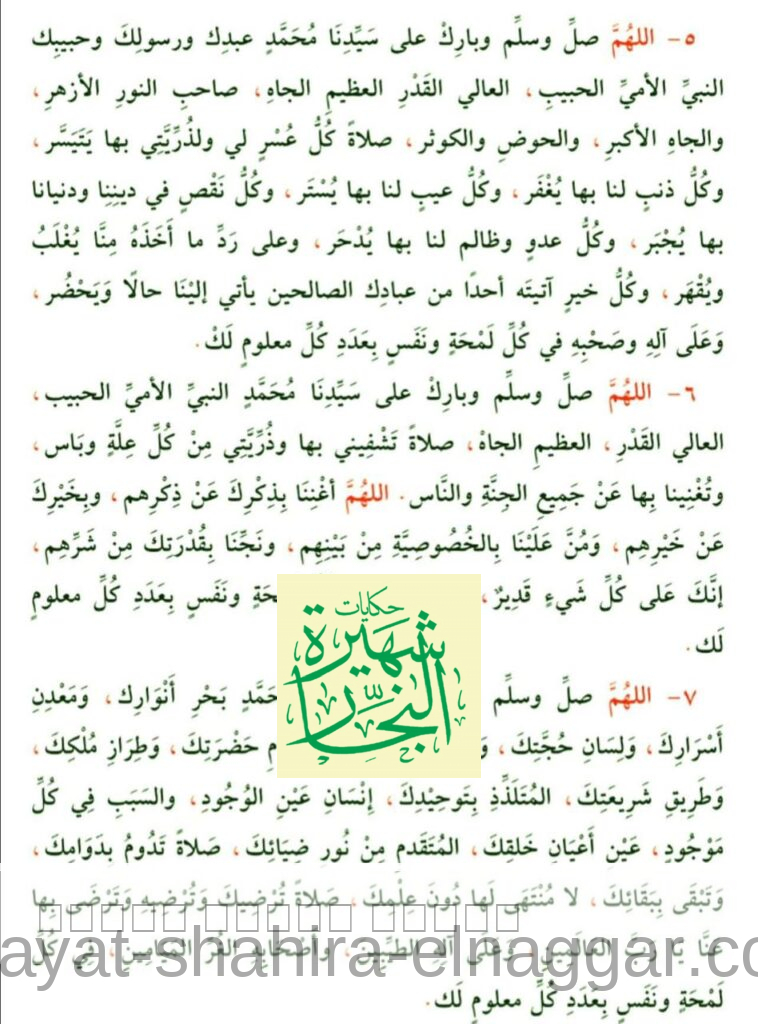 ٥- اللهُمَّ صلِّ وسلِّم وبارِكْ على سَيِّدِنَا مُحَمَّدٍ عبدِك ورسولِكَ وحبيبِك
النبيِّ الأميِّ الحبيبِ، العالي القَدْرِ العظيمِ الجاهِ، صاحبِ النورِ الأزهرِ،
والجاهِ الأكبرِ، والحوضِ والكوثر، صلاةً كُلُّ عُسْرٍ لي ولذُرِّيَّتِي بها يَتَيَسَّر،
وكُلُّ ذنبٍ لنا بها يُغْفَر، وكُلُّ عيبٍ لنا بها يُسْتَر، وكُلُّ نَقْصٍ في دينِنا ودنيانا
بها يُجْبَر، وكُلُّ عدوٍ وظالم لنا بها يُدْحَر، وعلى رَدِّ ما أَخَذَهُ مِنَّا يُغْلَبُ
ويُقْهَر، وكُلُّ خيرٍ آتيتَه أحدًا من عبادِك الصالحين يأتي إليْنَا حالًا وَيَحْضُر،
وَعَلَى آلِهِ وصَحْبِهِ في كُلِّ لَمْحَةٍ ونَفَسٍ بِعَدَدِ كُلِّ معلومٍ لَكْ.
٦- اللهُمَّ صلِّ وسلِّم وبارِكْ على سَيِّدِنَا مُحَمَّدٍ النبيِّ الأميِّ الحبيب،
العالي القَدْرِ، العظيمِ الجاهْ، صلاةً تَشْفِيني بها وذُرِّيَّتِي مِنْ كُلِّ عِلَّةٍ وبَاس،
وتُغْنِينا بِها عَنْ جَمِيعِ الجِنَّةِ والنَّاس. اللهُمَّ أغْنِنَا بِذِكْرِكَ عَنْ ذِكْرِهِم، وبِخَيْرِكَ
عَنْ خَيْرِهِم، وَمُنَّ عَلَيْنَا بِالخُصُوصِيَّةِ مِنْ بَيْنِهِم، ونَجِّنَا بِقُدْرَتِكَ مِنْ شَرِّهِم،
إنَّكَ عَلى كُلِّ شَيءٍ قَدِيرٌ، حَةٍ ونَفَسٍ بِعَدَدِ كُلِّ معلومٍ
لَك.
حكايات
شهيرة
النجار
٧- اللهُمَّ صلِّ وسلِّم حَمَّدٍ بَحْرِ أَنْوَارِك، وَمَعْدِنِ
أَسْرَارِكَ، وَلِسَانِ حُجَّتِكَ، حَضْرَتِكَ، وَطِرَازِ مُلْكِكَ،
وَطَرِيقِ شَرِيعَتِكَ، المُتَلَذِّذِ بِتَوحِيْدِكَ، إنْسَانِ عَيْنِ الوُجُودِ، والسَبَبِ فِي كُلِّ
مَوْجُودٍ، عَيْنِ أَعْيَانِ خَلقِكَ، المُتَقَدمِ مِنْ نُورِ ضِيَائِكَ، صَلاةً تَدُومُ بدَوَامِكَ،
وَتَبْقَى بِبَقَائِكَ، لا مُنْتَهَى لَها دُونَ عِلْمِكَ، صَلاةً تُرْضِيكَ وَتُرْضِيهِ وَتَرْضَى بِها
عَنَّا يَا رَبَّ العَالَمِين، وَعَلَى آلِهِ الطَيِّبِين، وأصْحَابِهِ الغُرِّ المَيَامِين، فِي كُلِّ
ayat-shahira-elnaggar.co
لَمْحَةٍ ونَفَسٍ بِعَدَدِ كُلِّ معلومٍ لَك.